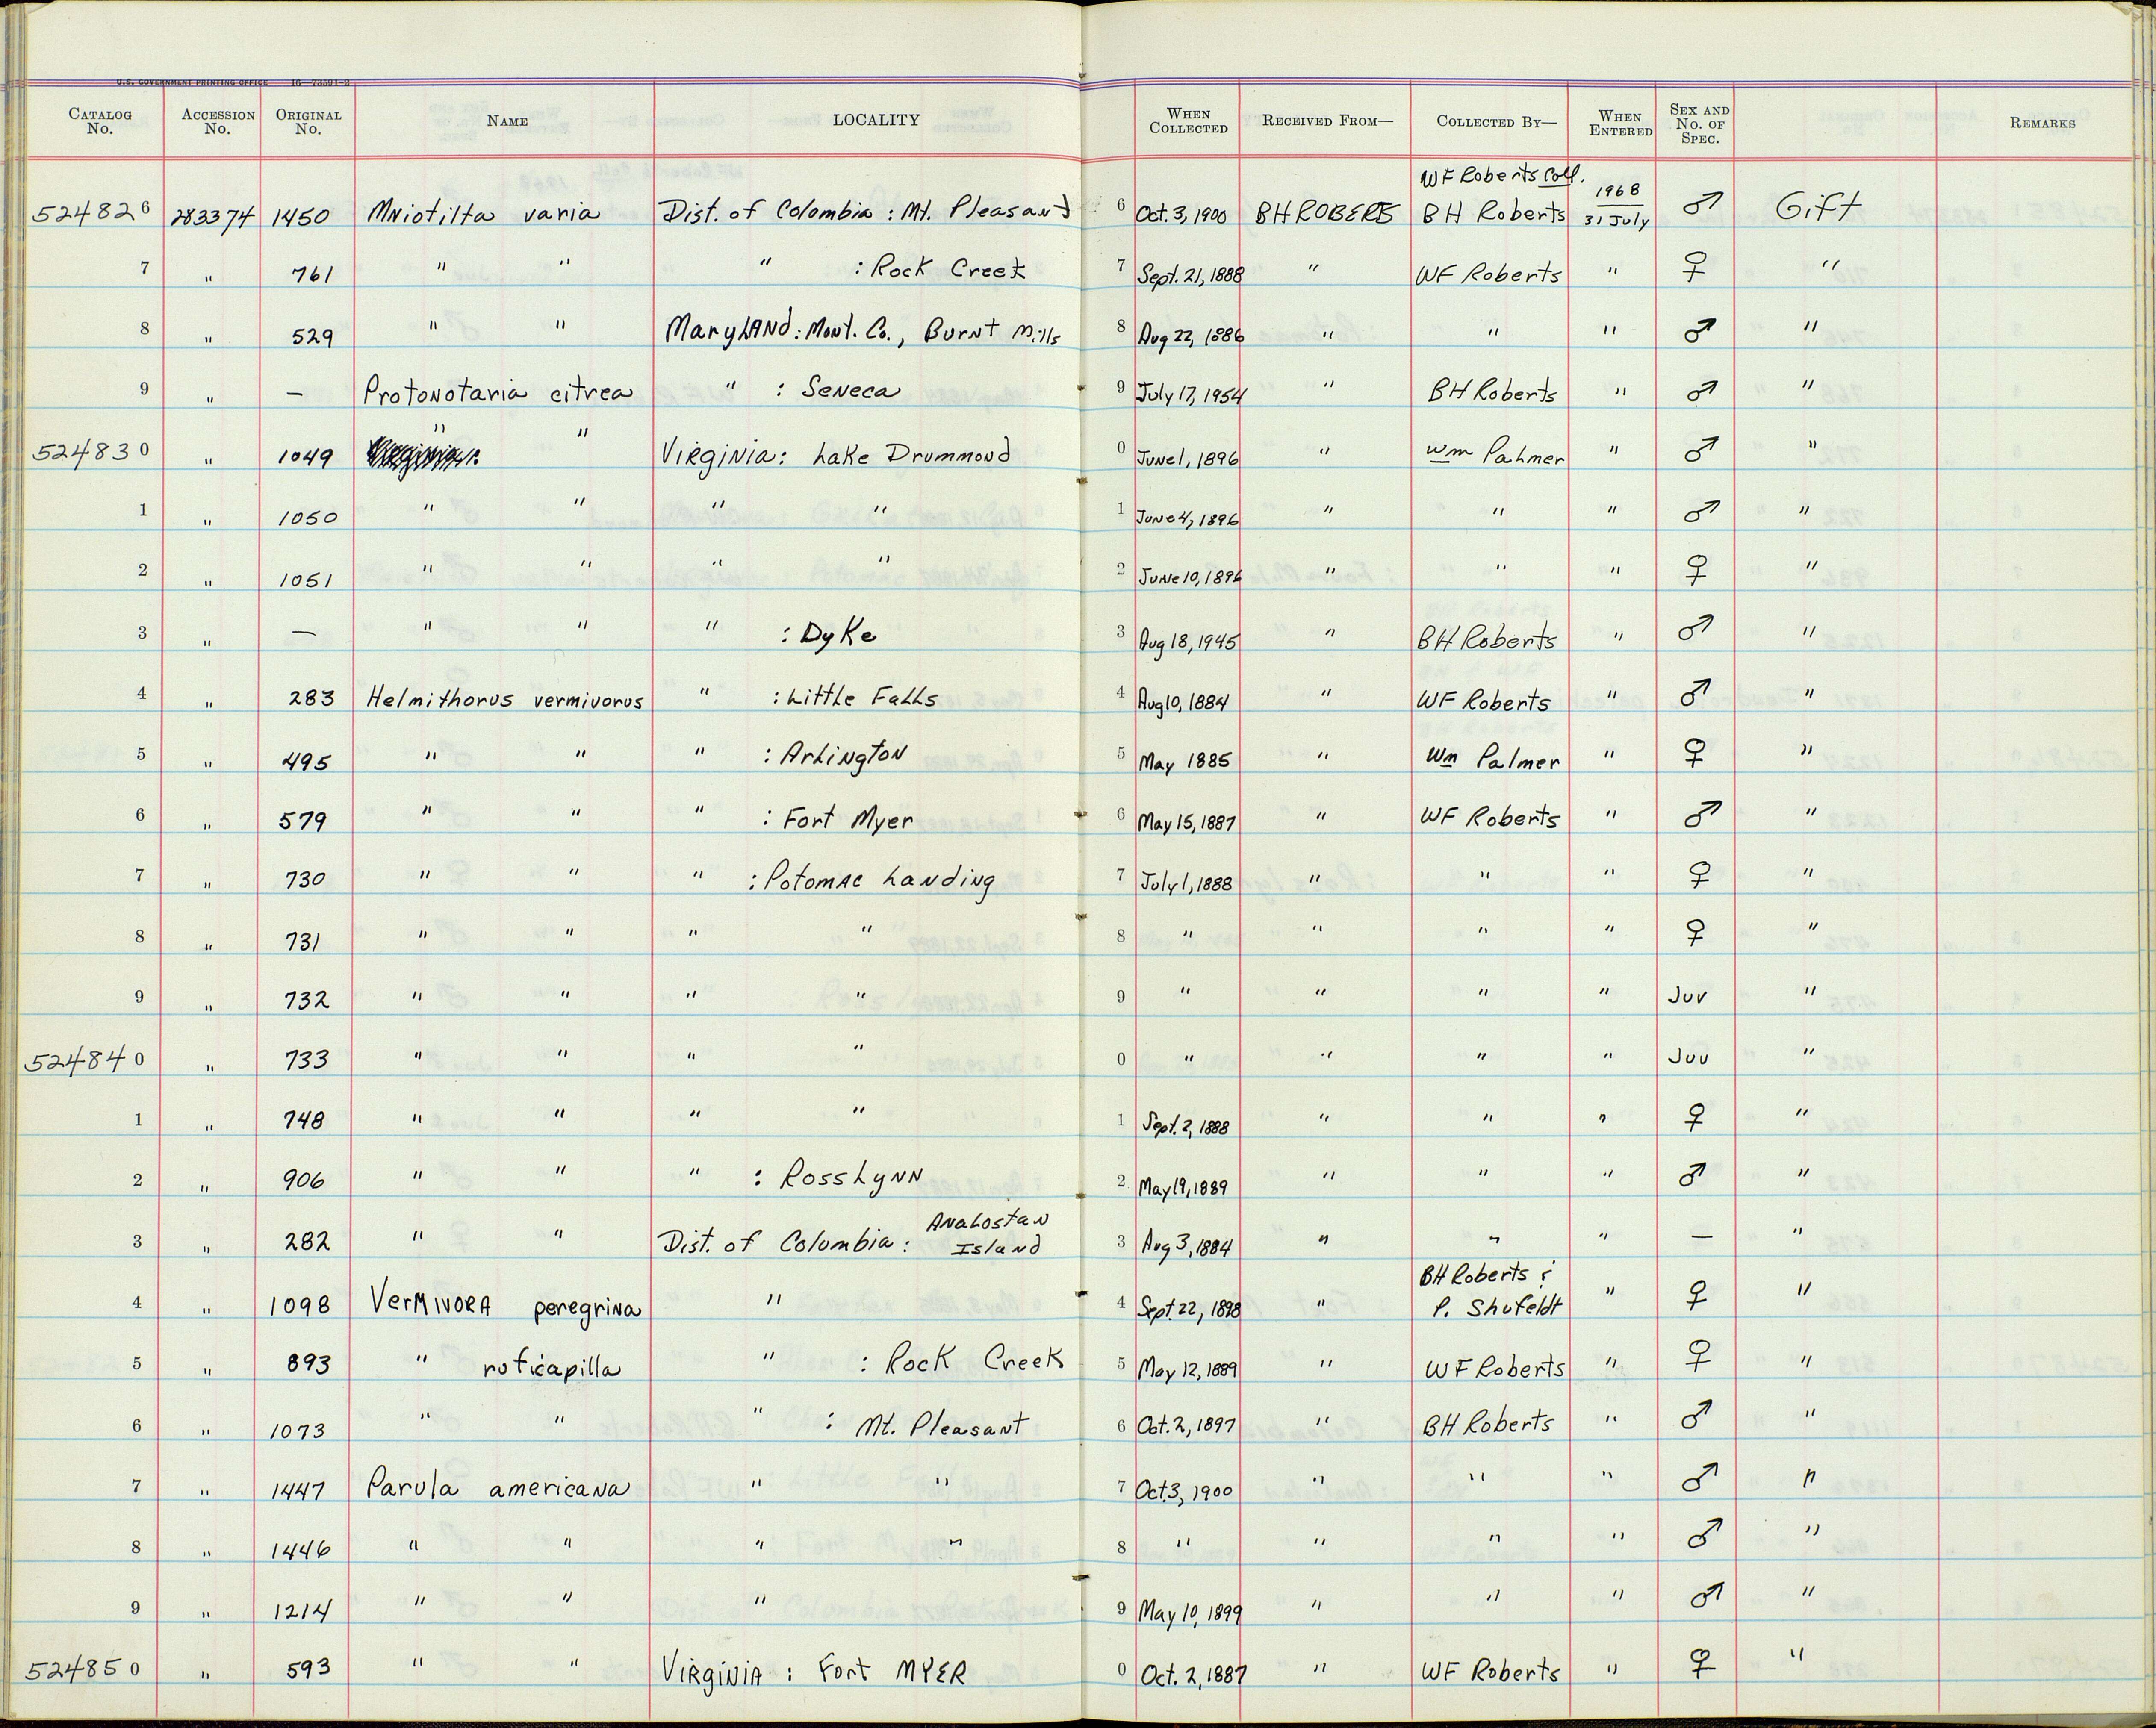 U.S. GOVERNMENT PRINTING OFFICE 16—73591-2
CATALOG No. ACCESSION No. ORIGINAL No. NAME LOCALITY WHEN COLLECTED RECEIVED FROM— COLLECTED BY— WHEN ENTERED SEX AND No. OF SPEC. REMARKS
524826 283374 1450 Mniotilta varia Dist. of Colombia : Mt. Pleasant 6 Oct. 3, 1900 BH ROBERTS WF Roberts Coll. BH Roberts 1968 31 July ♂ Gift
7 " 761 " " " : Rock Creek 7 Sept. 21, 1888 " WF Roberts " ♀ "
8 " 529 " " Maryland : Mont. Co., Burnt Mills 8 Aug 22, 1886 " " " ♂ "
9 " — Protonotaria citrea " : Seneca 9 July 17, 1954 " BH Roberts " ♂ "
524830 " 1049 " " Virginia : Lake Drummond 0 June 1, 1896 " Wm Palmer " ♂ "
1 " 1050 " " " " 1 June 4, 1896 " " " ♂ "
2 " 1051 " " " " 2 June 10, 1896 " " " ♀ "
3 " — " " " : Dyke 3 Aug 18, 1945 " BH Roberts " ♂ "
4 " 283 Helmithorus vermivorus " : Little Falls 4 Aug 10, 1884 " WF Roberts " ♂ "
5 " 495 " " " : Arlington 5 May 1885 " Wm Palmer " ♀ "
6 " 579 " " " : Fort Myer 6 May 15, 1887 " WF Roberts " ♂ "
7 " 730 " " " : Potomac Landing 7 July 1, 1888 " " " ♀ "
8 " 731 " " " " 8 " " " " ♀ "
9 " 732 " " " " 9 " " " " Juv "
524840 " 733 " " " " 0 " " " " Juv "
1 " 748 " " " " 1 Sept. 2, 1888 " " " ♀ "
2 " 906 " " " : Rosslynn 2 May 19, 1889 " " " ♂ "
3 " 282 " " Dist. of Columbia : Analostan Island 3 Aug 3, 1884 " " " — "
4 " 1098 Vermivora peregrina " 4 Sept. 22, 1898 " BH Roberts & P. Shufeldt " ♀ "
5 " 893 " ruficapilla " : Rock Creek 5 May 12, 1889 " WF Roberts " ♀ "
6 " 1073 " " " : Mt. Pleasant 6 Oct. 2, 1897 " BH Roberts " ♂ "
7 " 1447 Parula americana " " 7 Oct. 3, 1900 " " " ♂ "
8 " 1446 " " " " 8 " " " " ♂ "
9 " 1214 " " " 9 May 10, 1899 " " " ♂ "
524850 " 593 " " Virginia : Fort Myer 0 Oct. 2, 1887 " WF Roberts " ♀ "